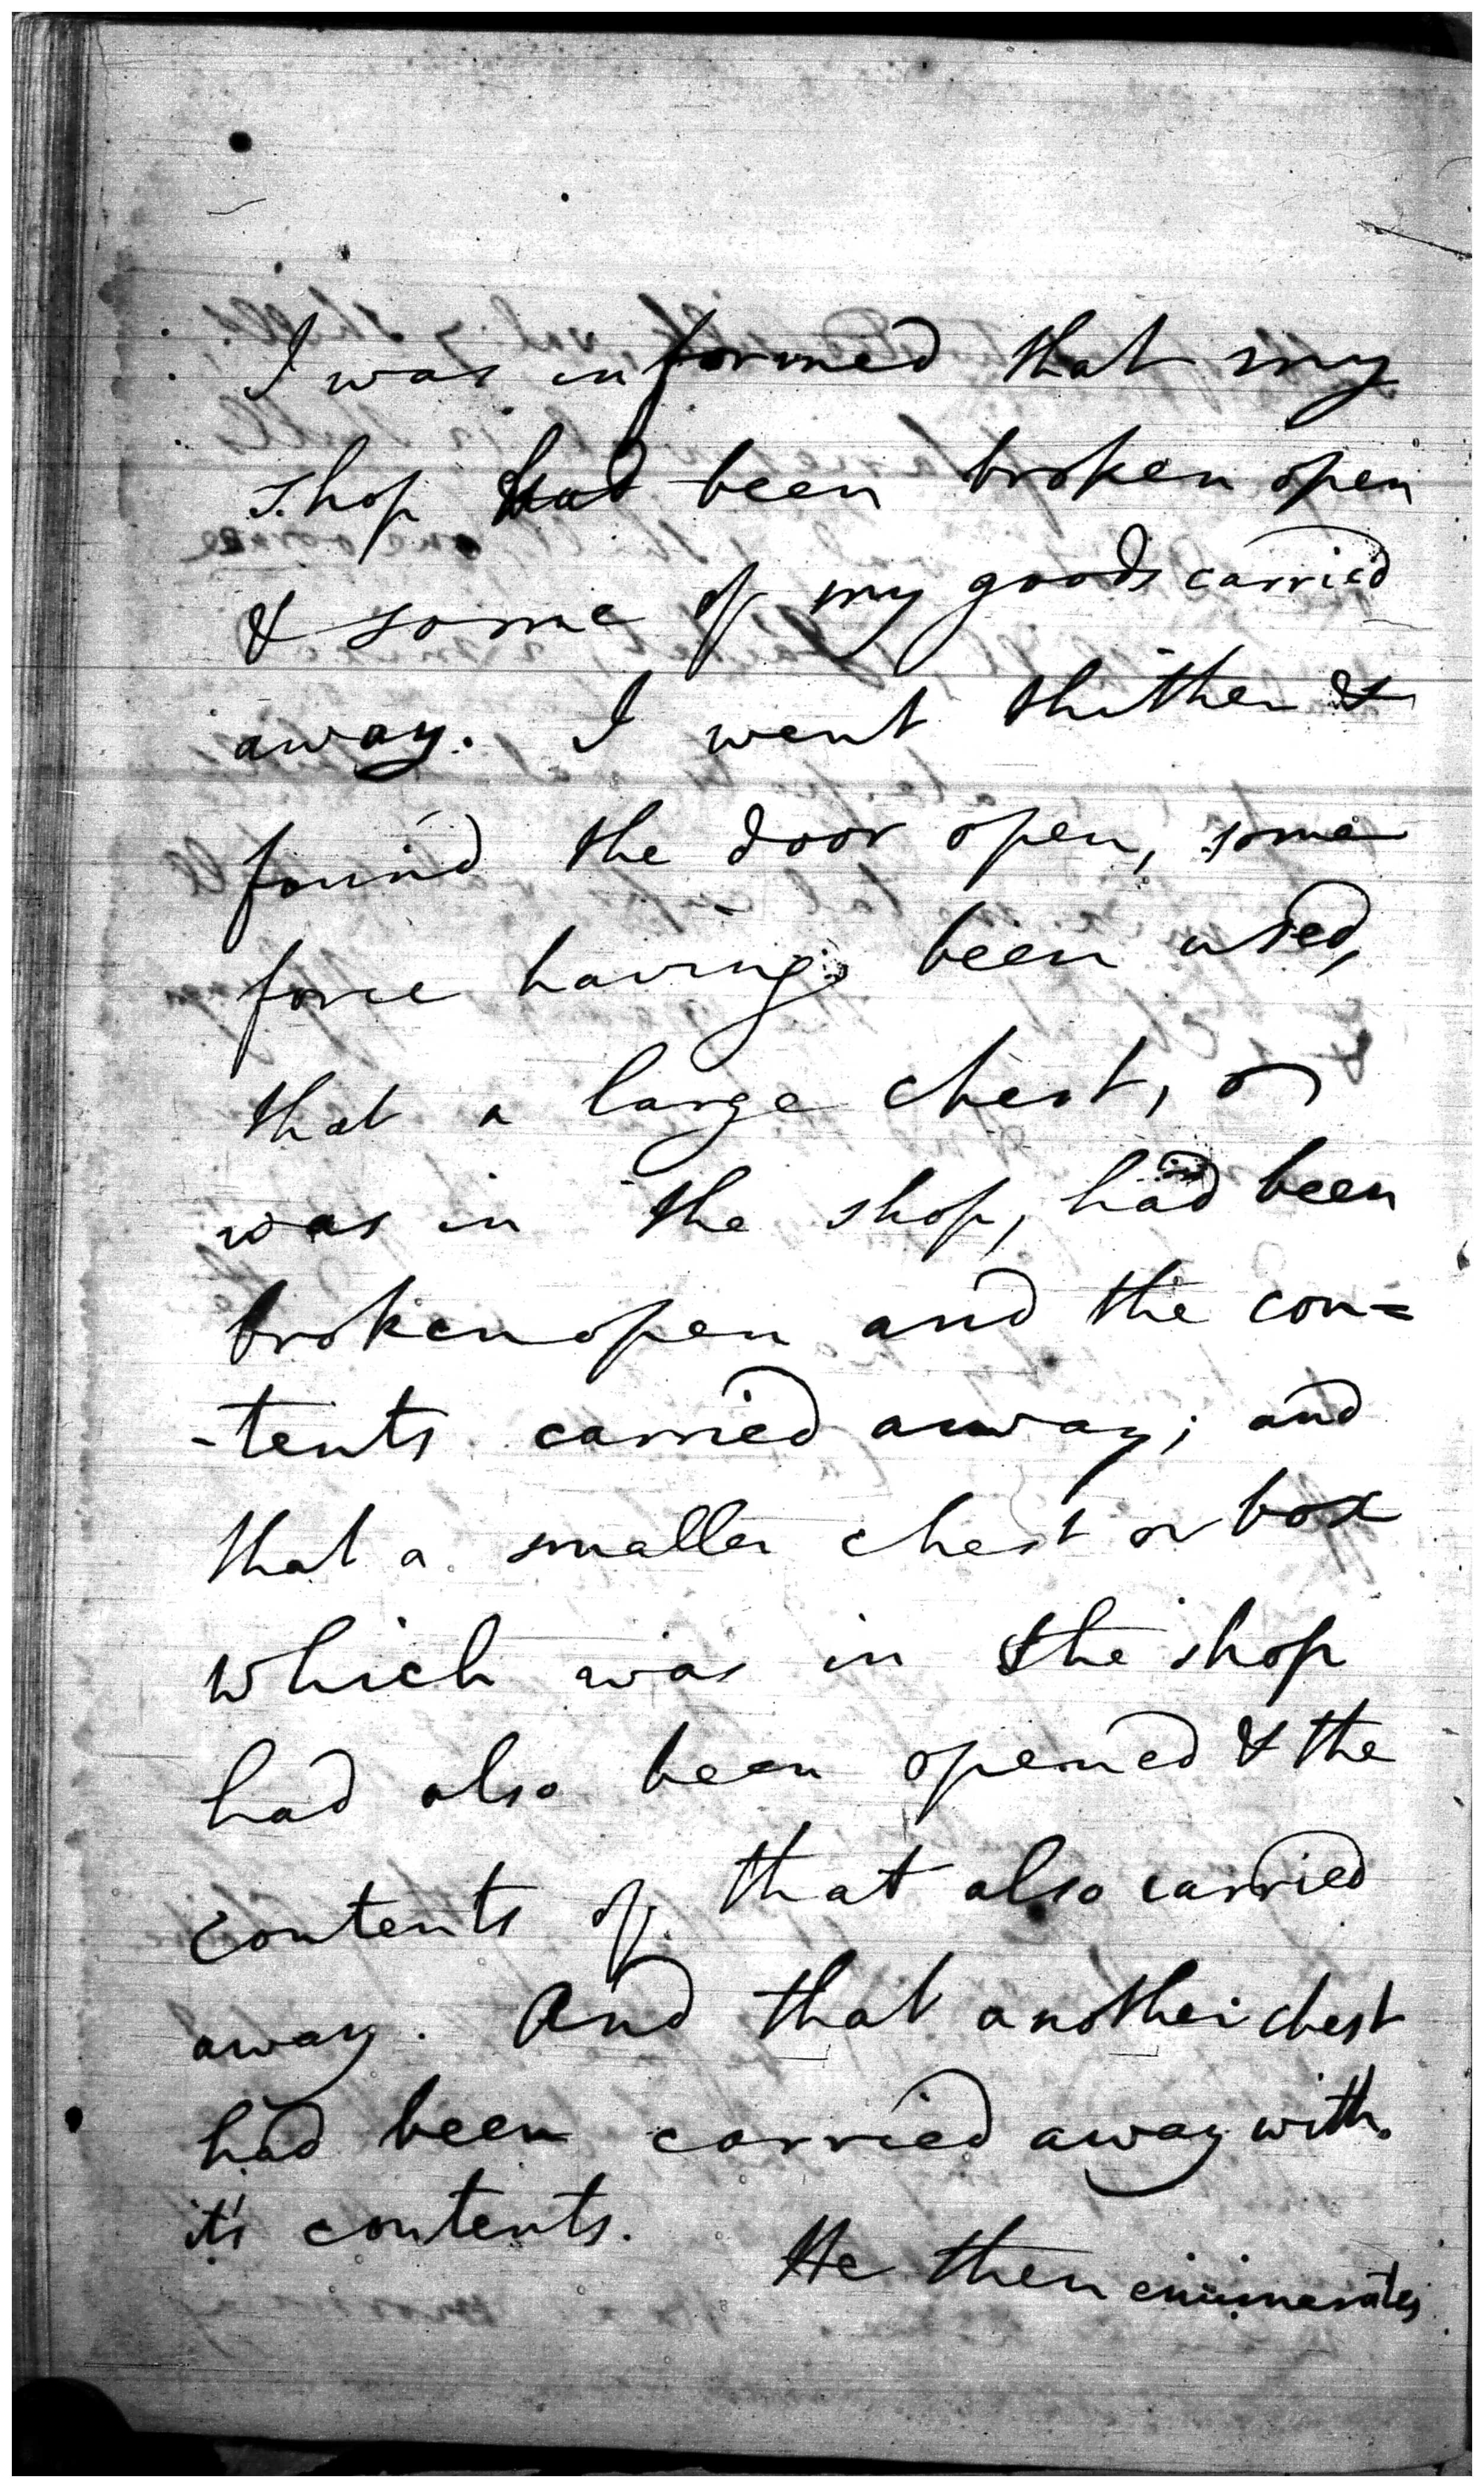 I was informed that my
shop had been broken open
& some of my goods carried
away. I went thither &
found the door open, some
force having been used,
that a large chest,
was in the shop, had been
broken open and the con=
-tents carried away; and
that a smaller chest or box
which was in the shop
had also been opened & the
contents of that also carried
away. And that another chest
had been carried away with
it's contents.
He then enumerates